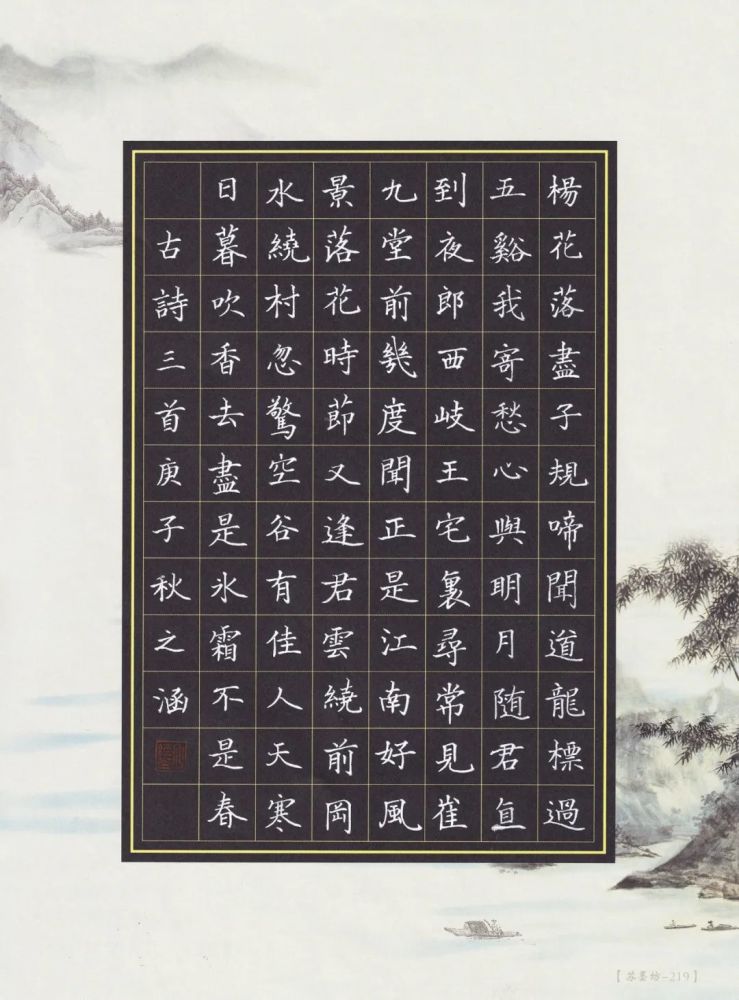 楊花落盡子規啼聞道龍標過
五谿我寄愁心與明月随君直
到夜郎西岐王宅裏尋常見崔
九堂前幾度聞正是江南好風
景落花時節又逢君雲繞前岡
水繞村忽驚空谷有佳人天寒
日暮吹香去盡是氷霜不是春
古詩三首庚子秋之涵
【苏墨坊-219】